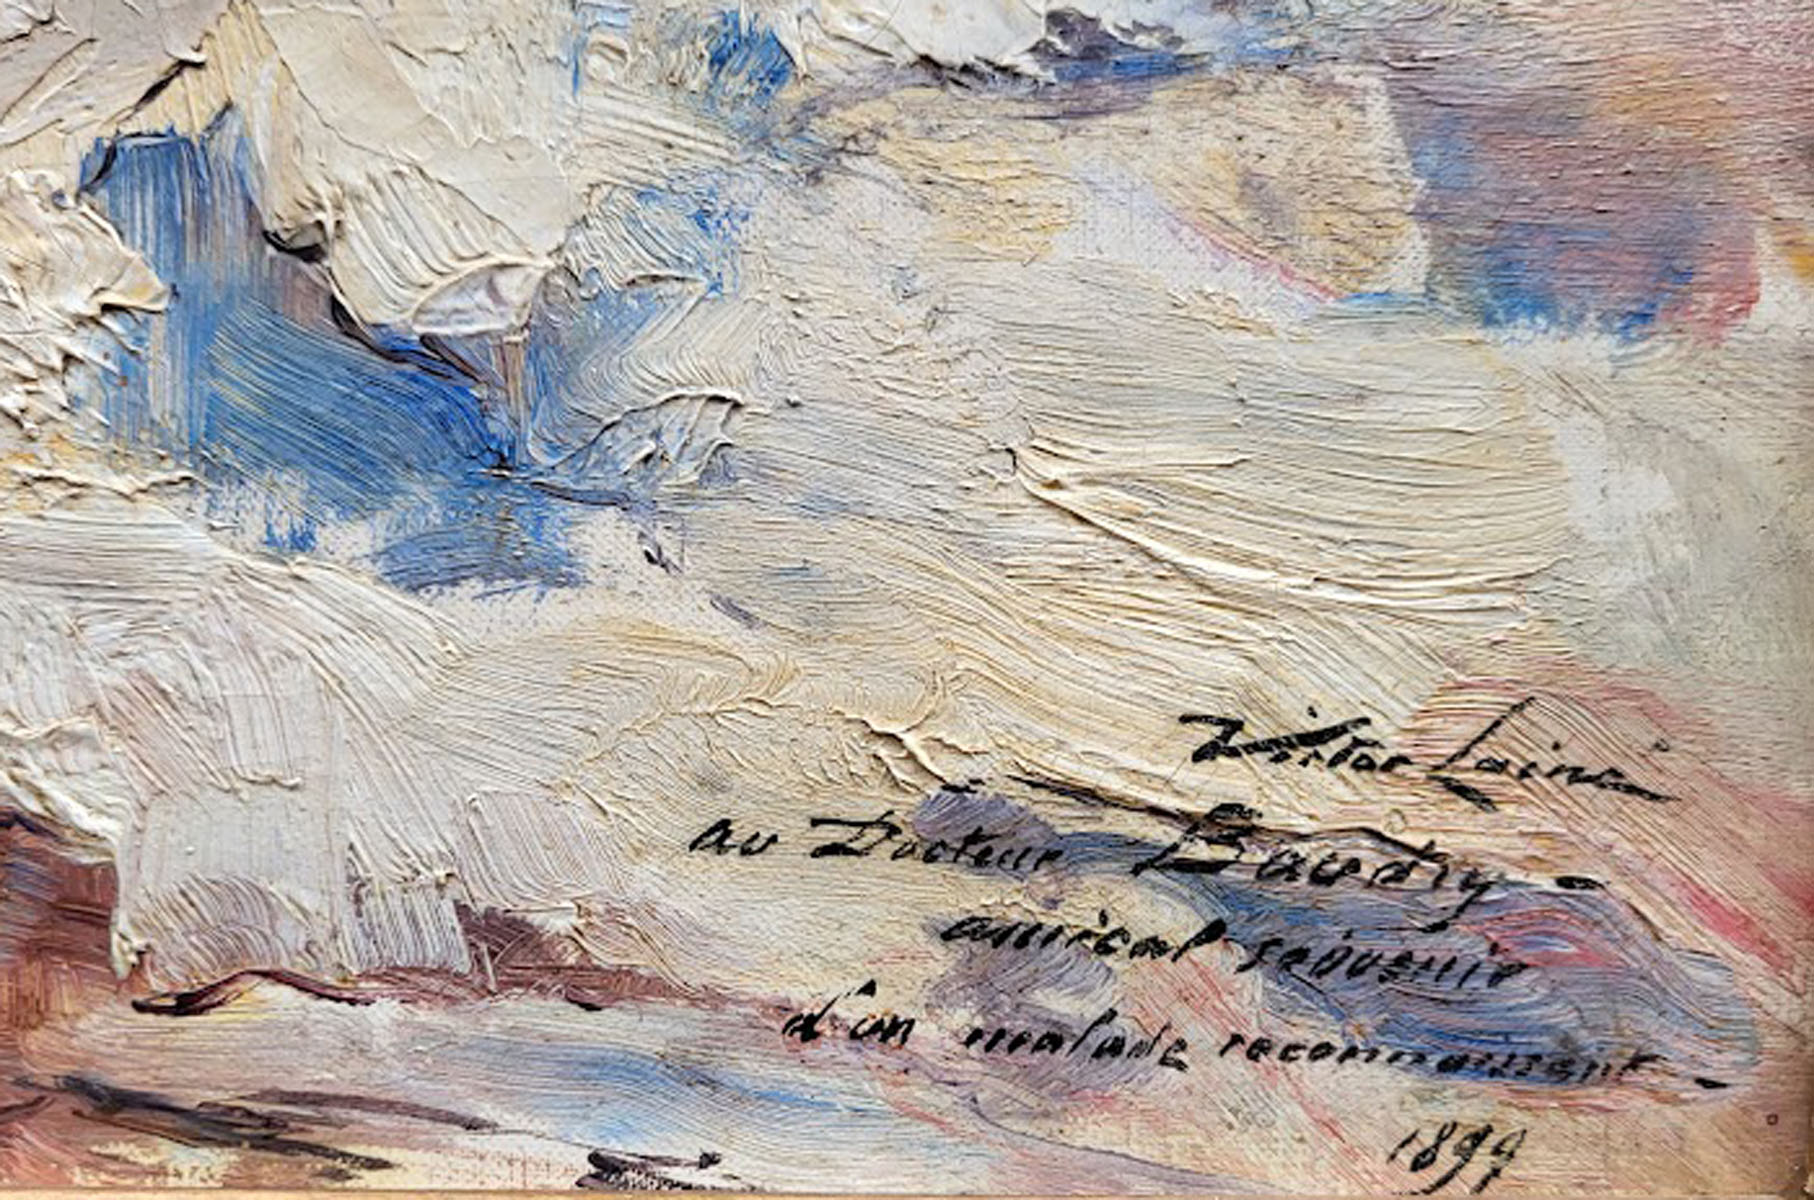 Victor Laine
au Docteur Baudry -
amical souvenir
d'un malade reconnaissant -
1899